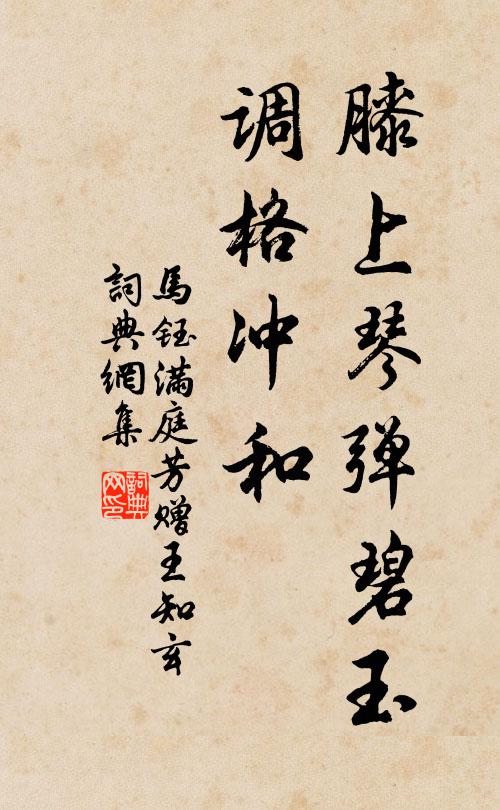 膝上琴弹碧玉
调格冲和
馬钰满庭芳赠王知玄
詞典網集
詞典
网印